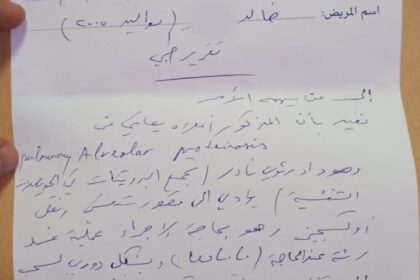 اسم المريض: خالد ( مواليد ٢٠٠٥ )
تقرير طبي
إلى من يهمه الأمر
نفيد بأن المذكور أعلاه يعاني من
pulmonary Alveolar proteinosis
وهو داء رئوي نادر ( تجمع البروتينات في الحويصلات
التنفسية ) يؤدي إلى نقص
أوكسجين وهو بحاجة لإجراء عملية غسل
رئة عند الحاجة ( ) وبشكل دوري